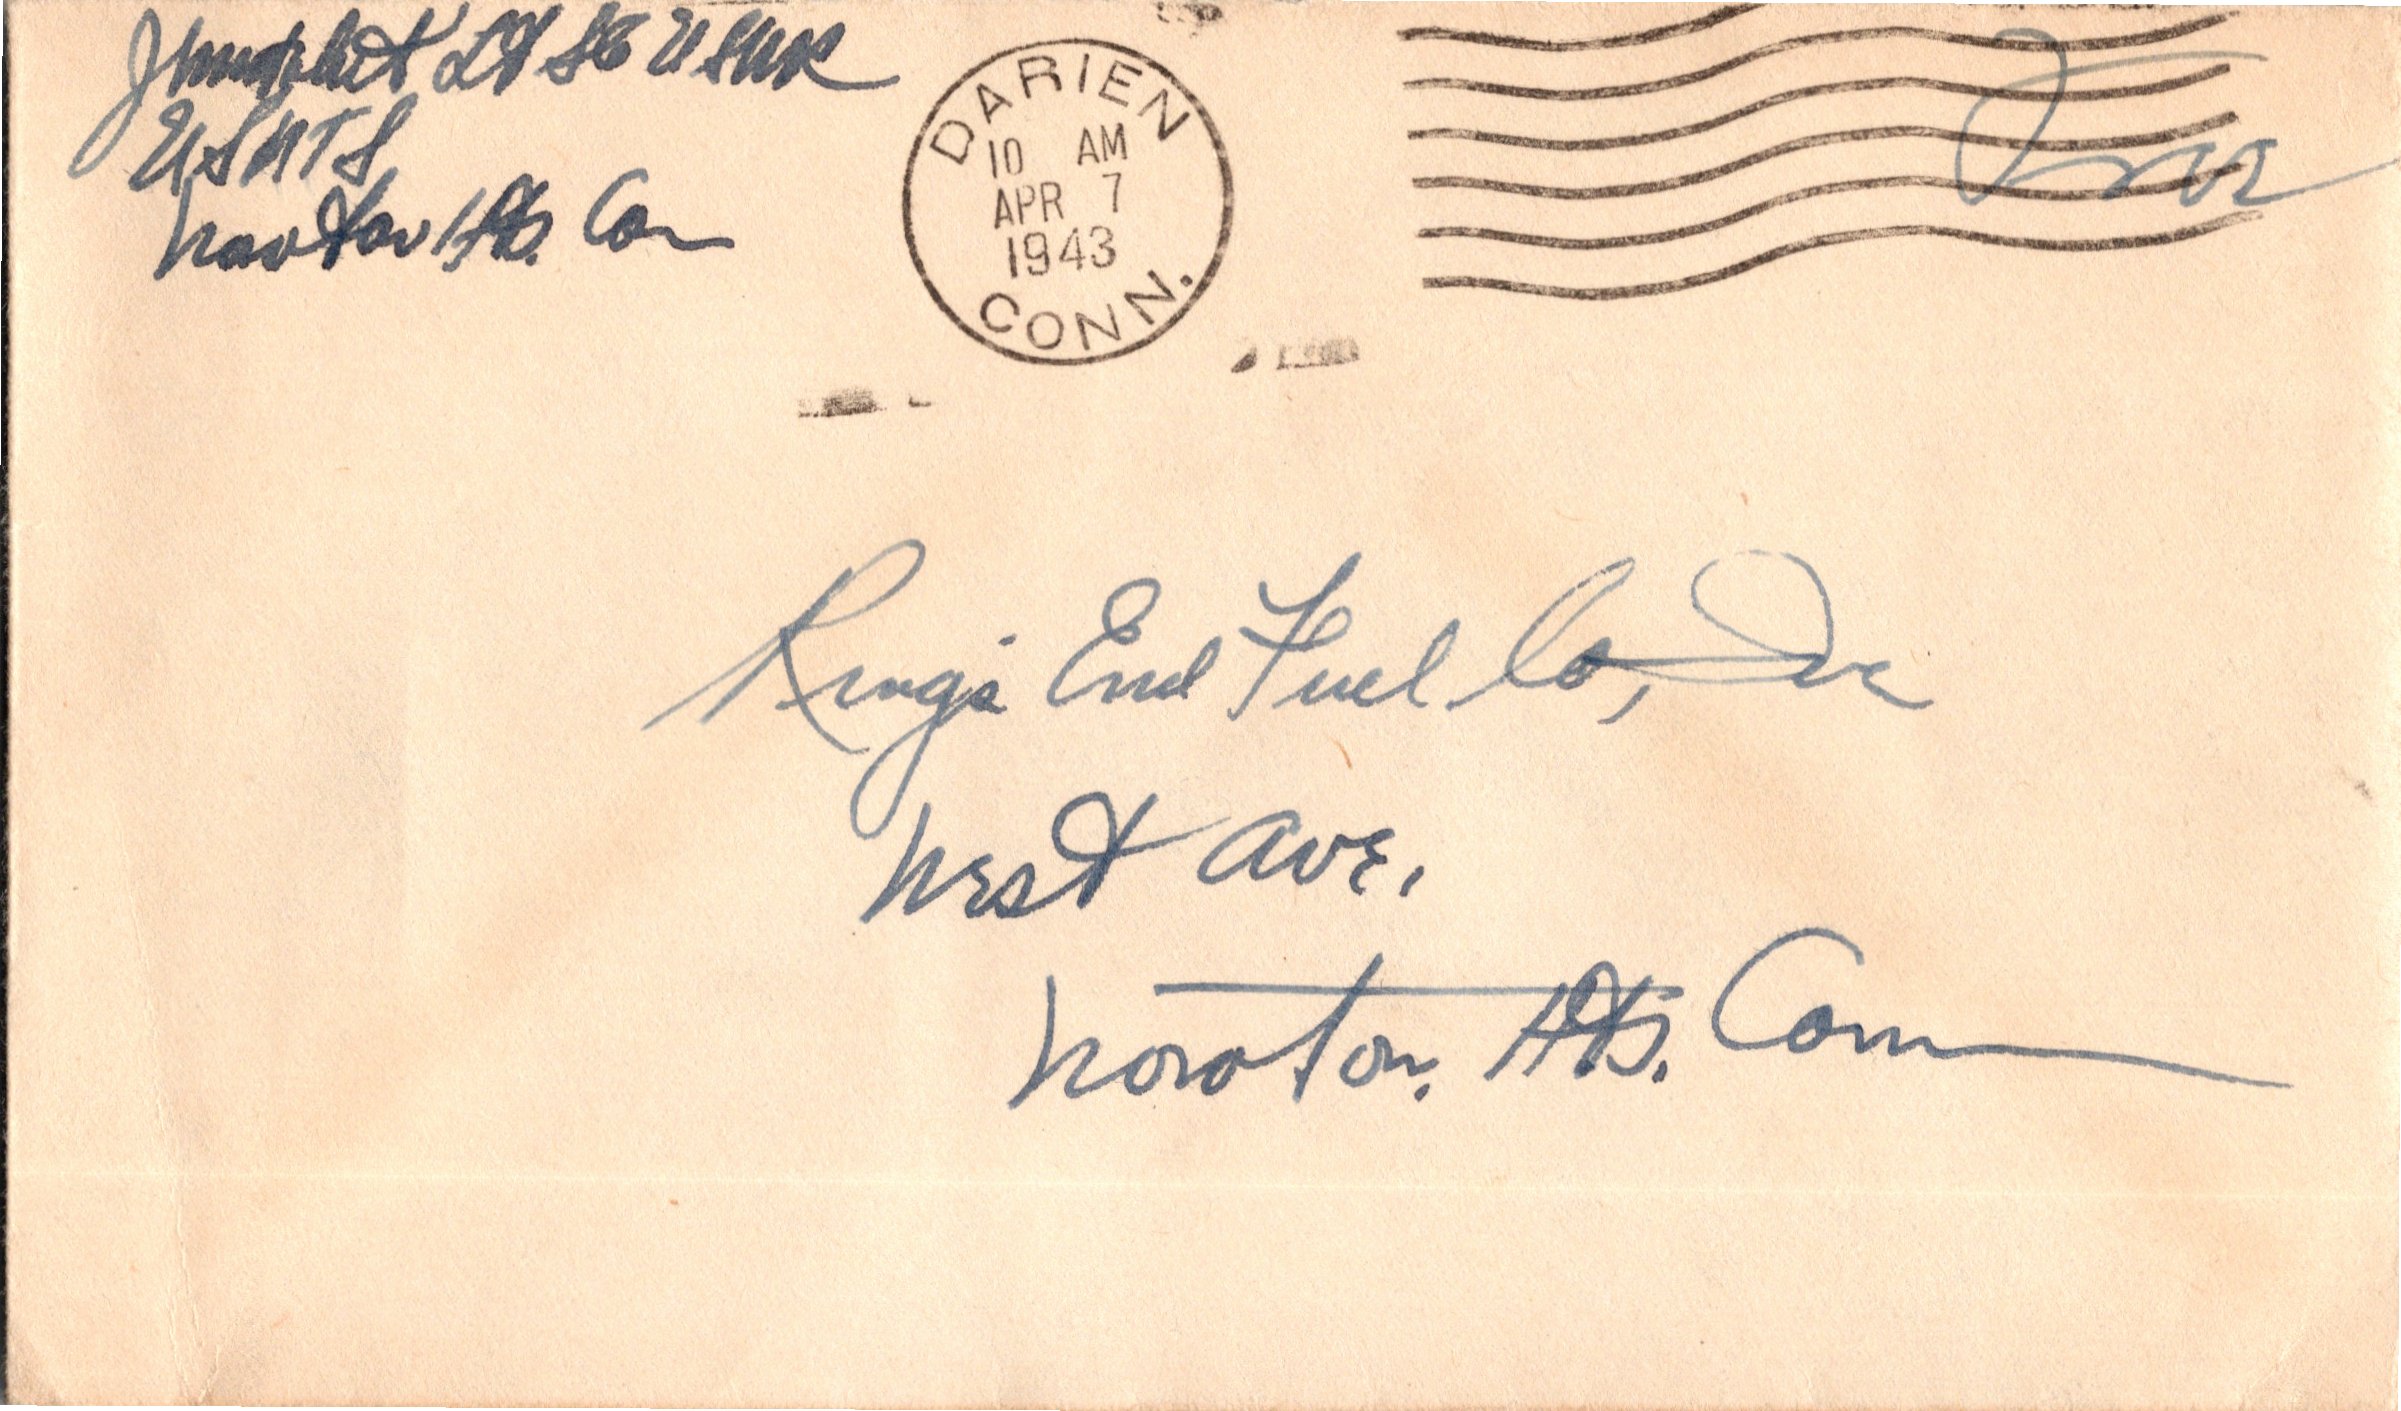 Lt SG USNR
USNTS
Noroton Hts. Con
DARIEN
10 AM
APR 7
1943
CONN.
Free
Ring's End Fuel Co, Inc
West Ave.
Noroton. Hts. Conn